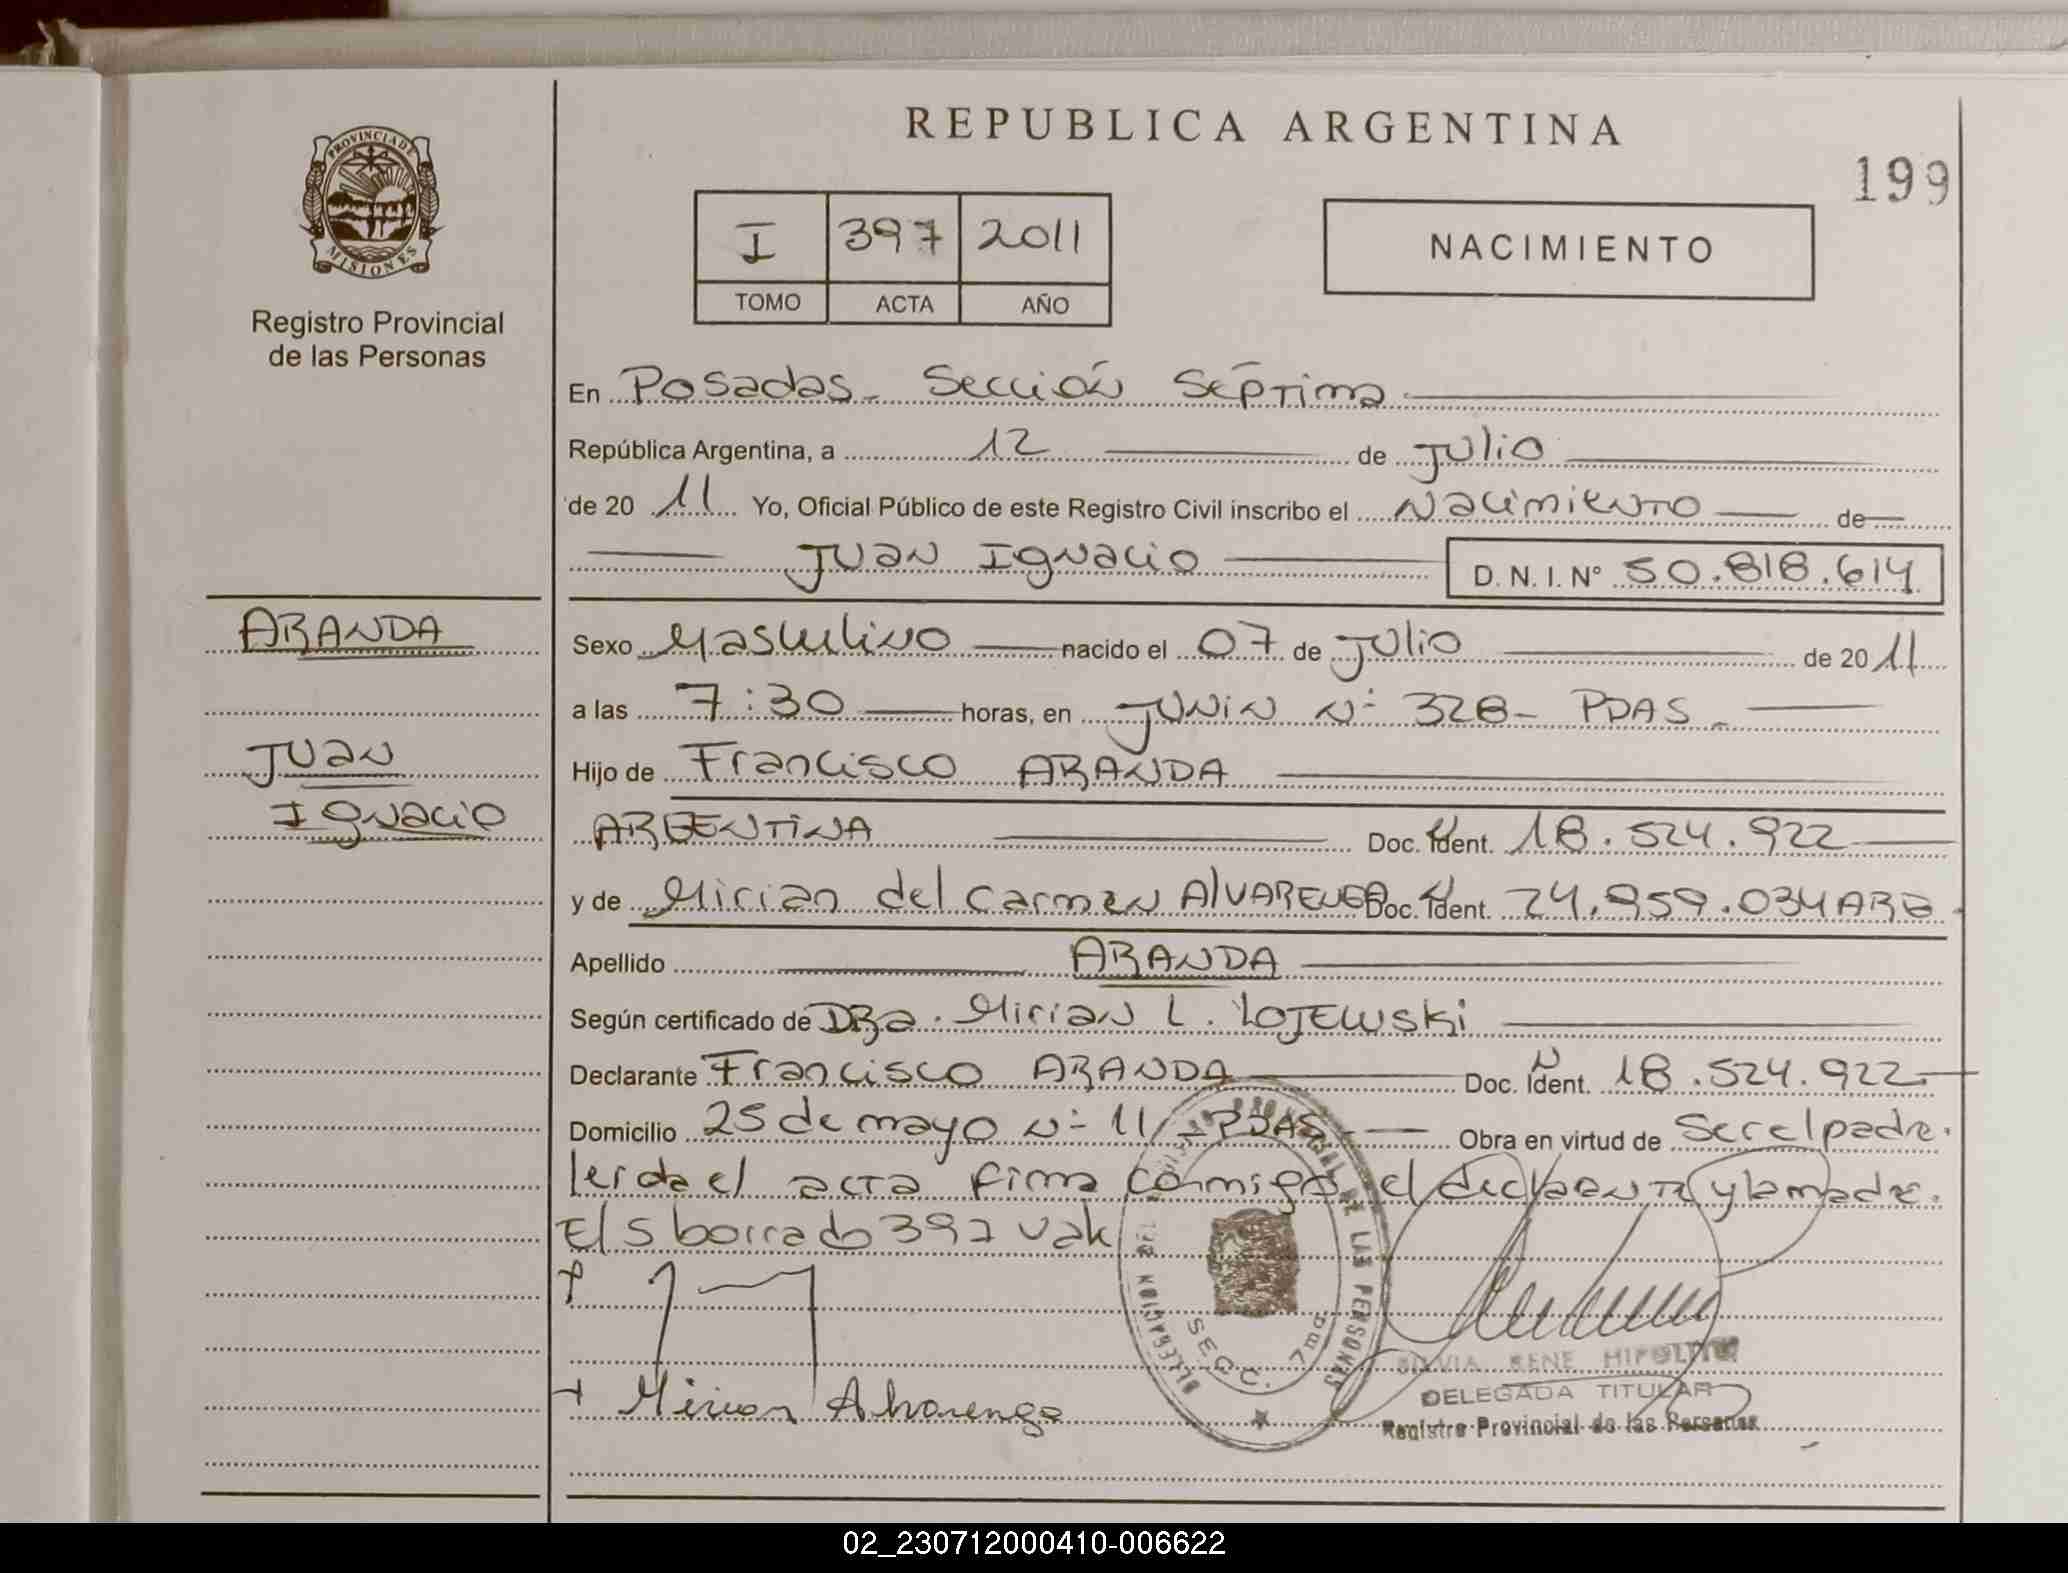 REPUBLICA ARGENTINA
199
PROVINCIA DE
MISIONES
Registro Provincial
de las Personas
I 397 2011
TOMO ACTA AÑO
NACIMIENTO
En Posadas - Sección Séptima
República Argentina, a 12 de Julio
de 20 11 Yo, Oficial Público de este Registro Civil inscribo el Nacimiento de
Juan Ignacio D. N. I. N° 50.818.614
ARANDA
Sexo Masculino nacido el 07 de Julio de 20 11
a las 7:30 horas, en Junin N° 328 - PDAS -
Juan
Hijo de Francisco ARANDA
Ignacio
ARGENTINA Doc. Ident. N 18.524.922
y de Mirian del Carmen AlVARENGA Doc. Ident. N 24.959.034 ARG.
Apellido ARANDA
Según certificado de DRa. Mirian L. LOJEWSKi
Declarante Francisco ARANDA Doc. Ident. N 18.524.922
Domicilio 25 de mayo N° 11 - PDAS - Obra en virtud de Ser el padre.
leida el acta firma conmigo el declarante y la madre.
El S borrado 397 vale
Mirian Alvarenga
DELEGACION PROVINCIAL DE LAS PERSONAS
SECC. 7ma
SILVIA RENE HIPOLITO
DELEGADA TITULAR
Registro Provincial de las Personas
02_230712000410-006622